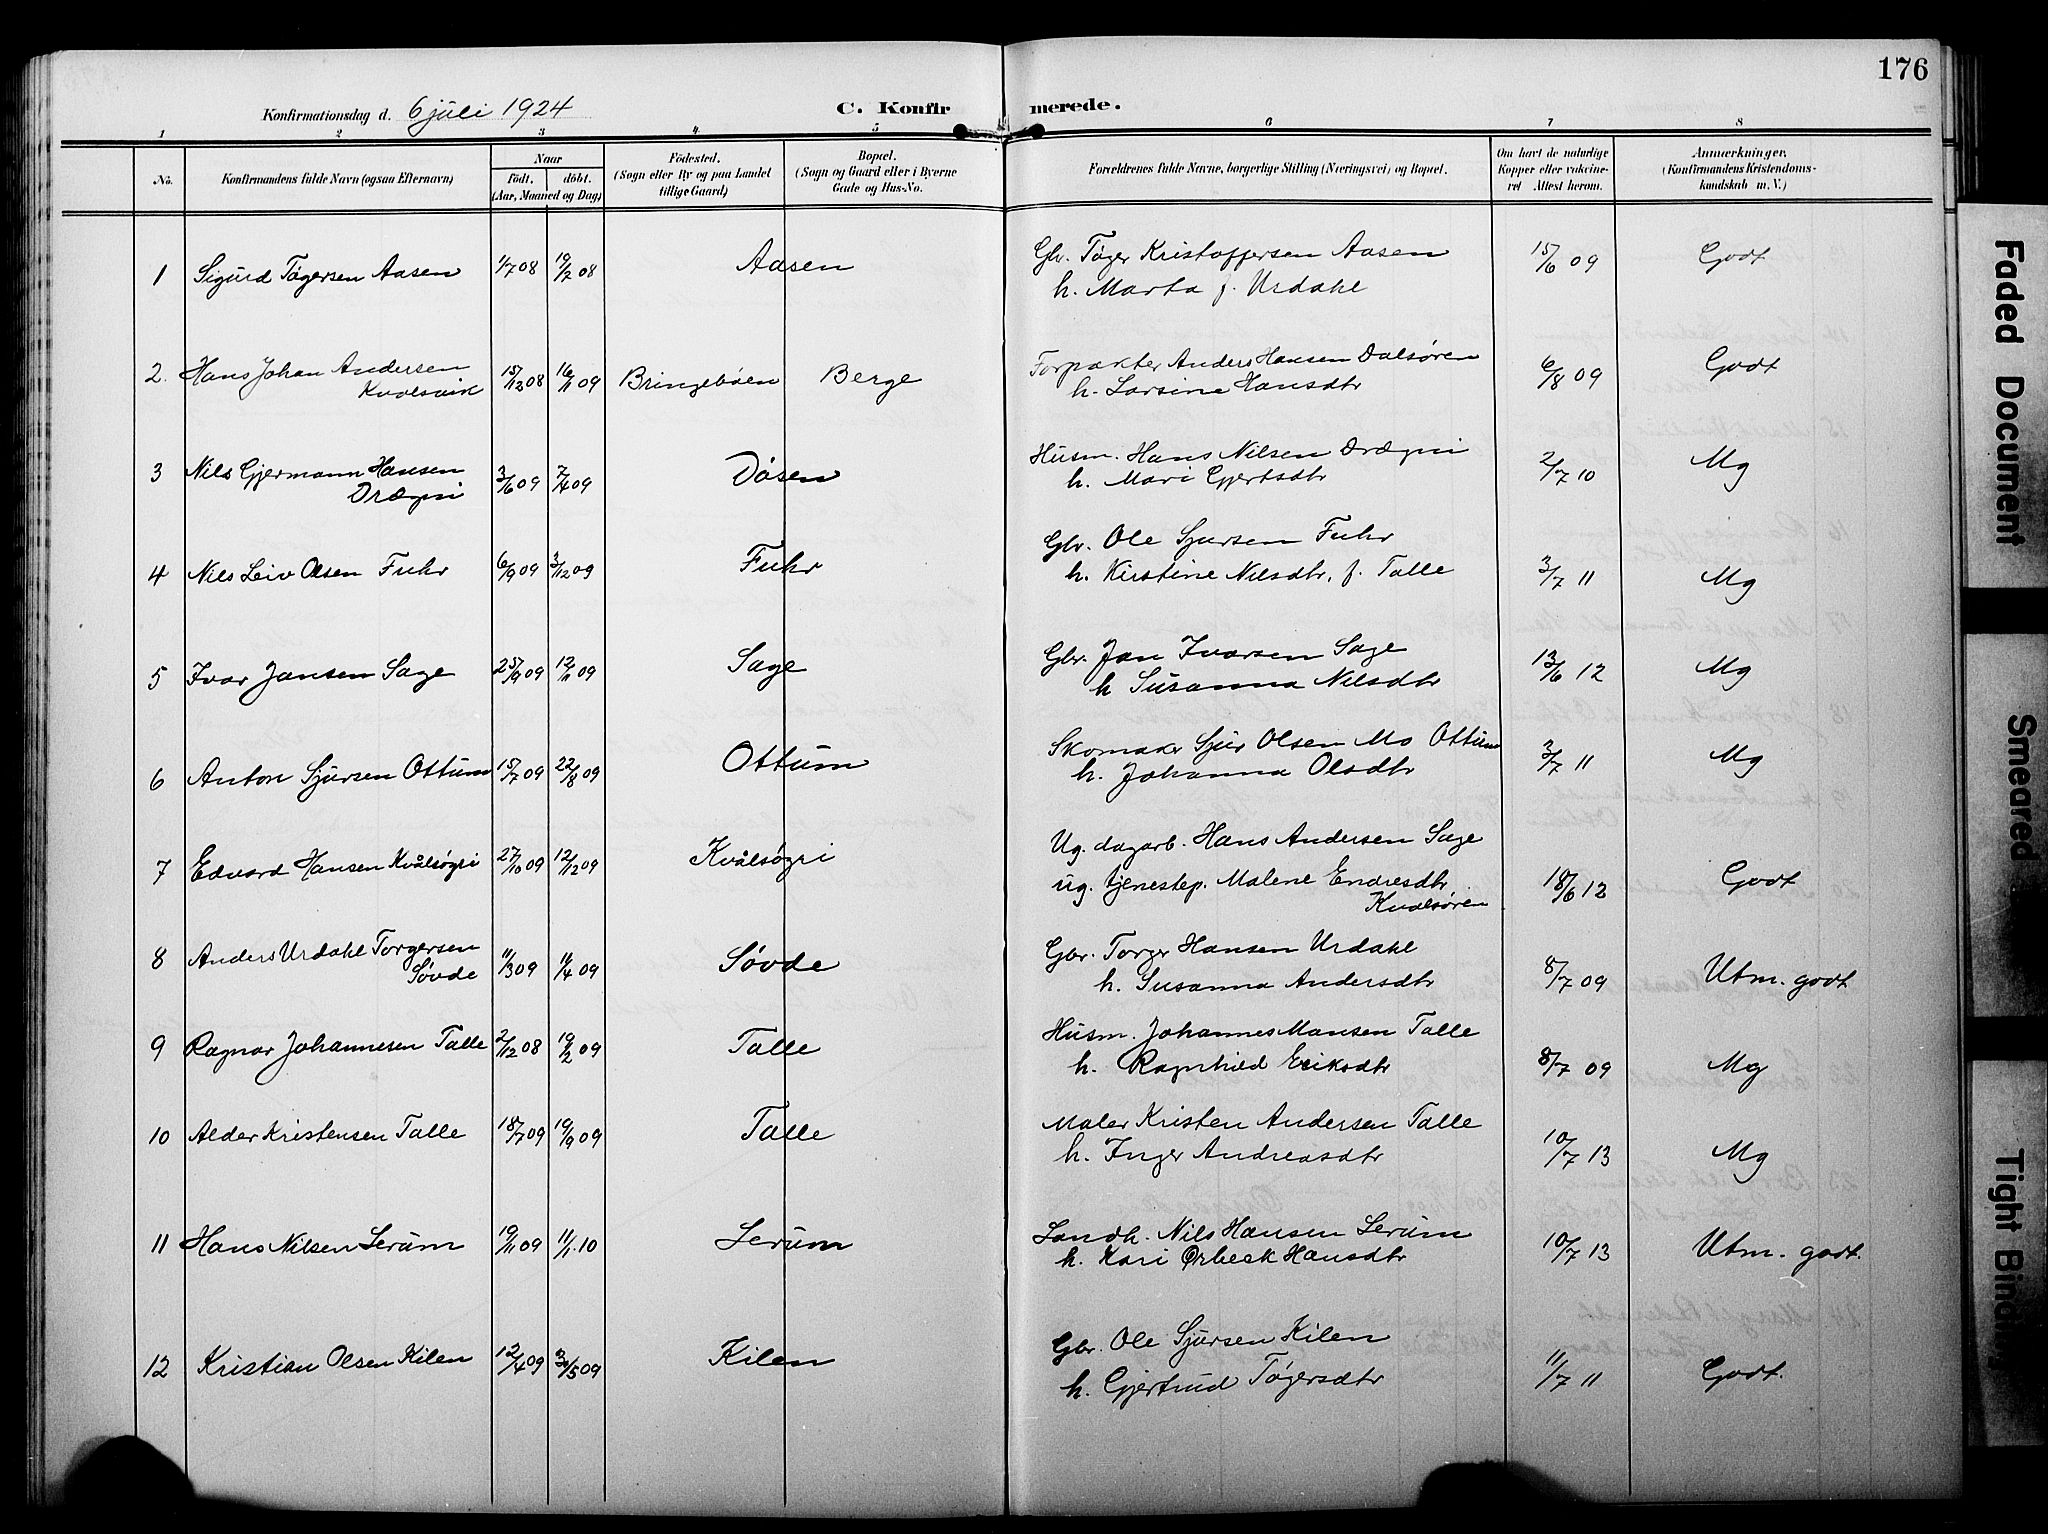 176
Konfirmationsdag d. 6 juli 1924
C. Konfirmerede.
1 2 3 4 5 6 7 8
No. Konfirmandens fulde Navn (ogsaa Efternavn)
Naar
födt. döbt.
(Aar, Maaned og Dag)
Födested.
(Sogn eller By og paa Landet
tillige Gaard)
Bopæl.
(Sogn og Gaard eller i Byerne
Gade og Hus-No.
Forældrenes fulde Navne, borgerlige Stilling (Næringsvei) og Bopæl.
Om havt de naturlige
Kopper eller vakcine-
ret Attest herom.
Anmærkninger.
(Konfirmandens Kristendoms-
kundskab m. V.)
1 Sigurd Tøgersen Aasen 1/7 08 19/7 08 Aasen Gbr. Tøger Kristoffersen Aasen 15/6 09 Godt
h. Marta f. Urdahl
2. Hans Johan Andersen 15/12 08 16/1 09 Bringebøen Berge Forpakter Anders Hansen Dalsøren 6/8 09 Godt
Kvalsvik h. Larsine Hansdtr
3 Nils Gjermann Hansen 3/6 09 7/4 09 Døsen Husm. Hans Nilsen Drægni 2/7 10 Mg
Drægni h. Mari Gjertsdtr
4 Nils Leiv Olsen Fuhr 6/9 09 3/12 09 Fuhr Gbr. Ole Sjursen Fuhr 3/7 11 Mg
h. Kirstine Nilsdtr, f. Talle
5 Ivar Jansen Sage 25/9 09 12/11 09 Sage Gbr. Jan Ivarsen Sage 13/6 12 Mg
h Susanna Nilsdtr
6 Anton Sjursen Ottum 15/7 09 22/8 09 Ottum Skomaker Sjur Olsen Mo Ottum 3/7 11 Mg
h. Johanna Olsdtr
7 Edvard Hansen Kvålsøgri 27/10 09 12/12 09 Kvålsøgri Ug. dagarb. Hans Andersen Sage 18/6 12 Godt
ug. tjenestep. Malene Endresdtr
Kvalsøren
8 Anders Urdahl Torgersen 11/3 09 11/4 09 Søvde Gbr. Torger Hansen Urdahl 8/7 09 Utm. godt
Søvde h. Susanna Andersdtr
9 Ragnar Johannesen Talle 2/12 08 19/2 09 Talle Husm. Johannes Mansen Talle 8/7 09 Mg
h. Ragnhild Eriksdtr
10 Alder Kristensen Talle 18/7 09 19/9 09 Talle Maler Kristen Andersen Talle 10/7 13 Mg
h. Inger Andreasdtr
11 Hans Nilsen Lerum 19/11 09 11/1 10 Lerum Landh. Nils Hansen Lerum 10/7 13 Utm. godt.
h. Kari Ørbeck Hansdtr
12 Kristian Olsen Kilen 12/4 09 /5 09 Kilen Gbr. Ole Sjursen Kilen 11/7 11 Godt.
h. Gjertrud Tøgersdtr
Faded Document
Smeared
Tight Bindi